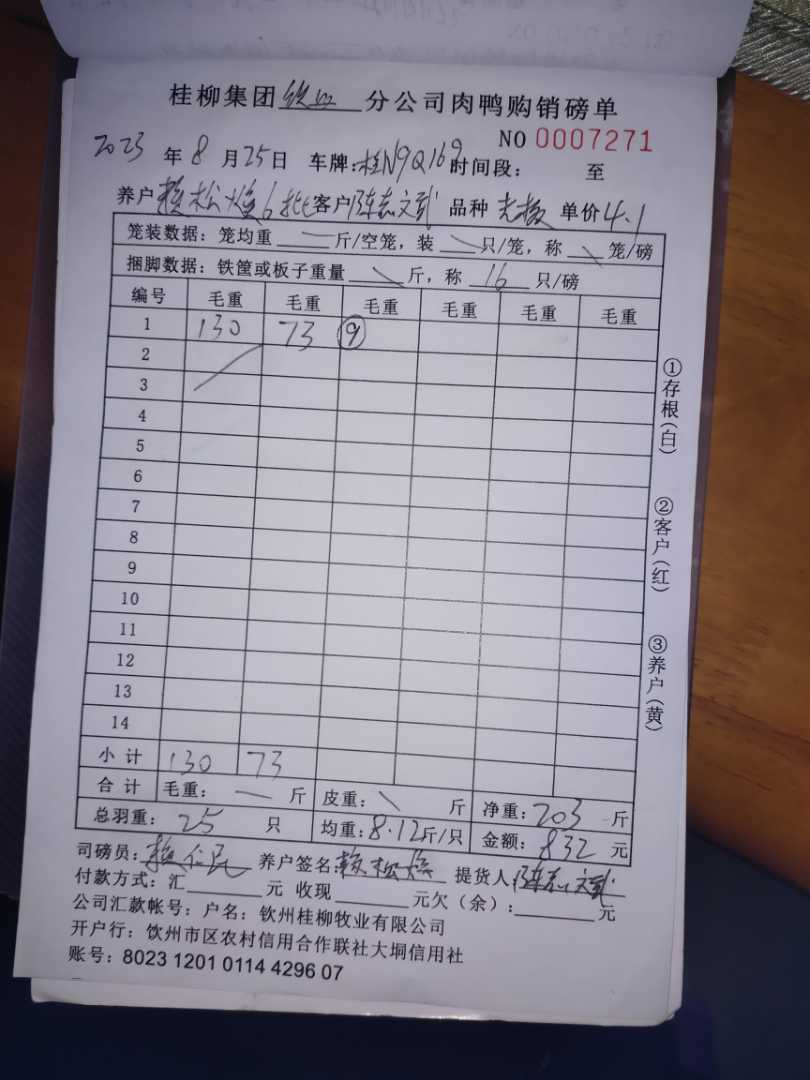 桂柳集团 分公司肉鸭购销磅单
NO 0007271
2023 年 8 月 25 日 车牌:桂N9Q169 时间段: 至
养户 赖松 6批 客户 陈志文武 品种 单价 4.1
笼装数据:笼均重 斤/空笼,装 只/笼,称 笼/磅
捆脚数据:铁筐或板子重量 斤,称 16 只/磅
编号 毛重 毛重 毛重 毛重 毛重 毛重
1 130 73 ⑨
2
3
4
5
6
7
8
9
10
11
12
13
14
小计 130 73
合计 毛重: 斤 皮重: 斤 净重: 203 斤
总羽重: 25 只 均重: 8.12 斤/只 金额: 832 元
司磅员: 养户签名: 赖松 提货人 陈志文武
付款方式:汇 元 收现 元欠(余): 元
公司汇款帐号:户名:钦州桂柳牧业有限公司
开户行:饮州市区农村信用合作联社大垌信用社
账号:8023 1201 0114 4296 07
①存根(白)
②客户(红)
③养户(黄)